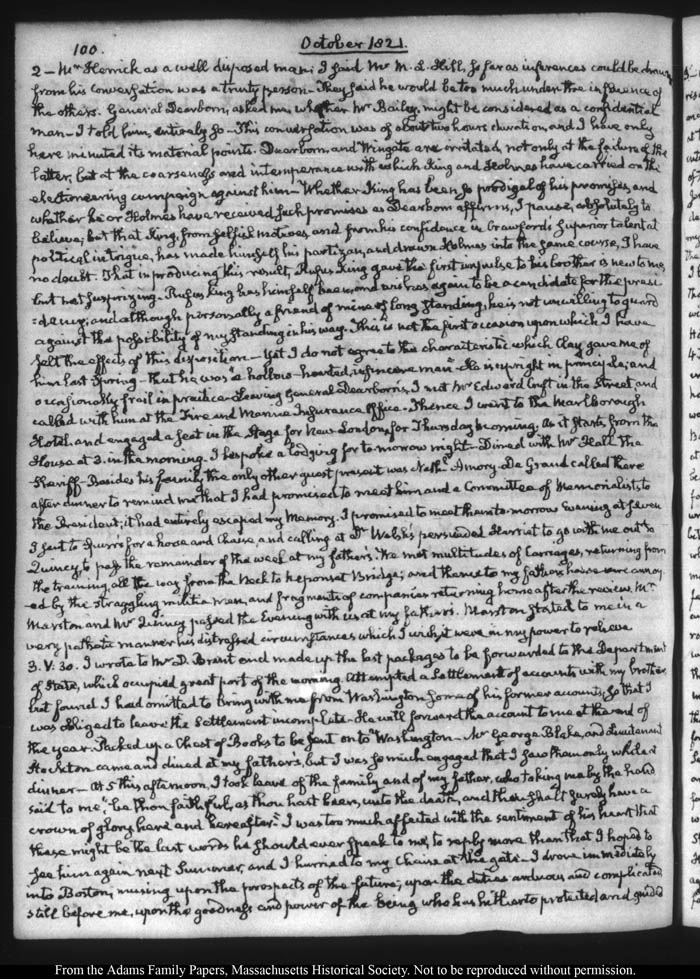 100.
October 1821.
2 — Mr. Herrick as a well disposed man; I said Mr. M. L. Hill, so far as inferences could be drawn
from his conversation was a trusty person — They said he would be too much under the influence of
the others. General Dearborn, asked me whether Mr Bailey, might be considered as a confidential
man — I told him, entirely so — This conversation was of about two hours duration, and I have only
here minuted its material points. Dearborn, and Wingate are irritated, not only at the failure of the
latter, but at the coarseness and intemperance with which King and Holmes have carried on the
electioneering campaign against him — Whether King has been so prodigal of his promises, and
whether he or Holmes have received such promises as Dearborn affirms, I pause, absolutely to
believe; but that King, from selfish motives, and from his confidence in Crawford's superior talent at
political intrigue, has made himself his partizan, and drawn Holmes into the same course, I have
no doubt. That in producing this result, Rufus King gave the first impulse to his brother is new to me,
but not surprizing. Rufus King has himself been, and wishes again to be a candidate for the Presi
-dency; and although personally a friend of mine of long standing, he is not unwilling to guard
against the possibility of my standing in his way. This is not the first occasion upon which I have
felt the effects of this disposition — Yet I do not agree to the characteristic which Clay gave me of
him last Spring — that he was "a hollow-hearted, insincere man" — He is upright in principle; and
occasionally frail in practice — Leaving General Dearborn's, I met Mr Edward Cruft in the Street, and
called with him at the Fire and Marine Insurance Office — Thence I went to the Marlborough
Hotel, and engaged a seat in the Stage for New-London, for Thursday morning. As it starts from the
House at 3. in the morning. I bespoke a lodging for to-morrow night — Dined with Mr Hall the
Sheriff — Besides his family, the only other guest present was Nathl. Amory. De Grand called there
after dinner to remind me that I had promised to meet him and a Committee of Memorialists, to
the President; it had entirely escaped my Memory. I promised to meet them to-morrow Evening at seven
I sent to Spurr's for a horse and Chaise, and calling at Dr Welsh's persuaded Harriet to go with me out to
Quincy, to pass the remainder of the week at my father's. We met multitudes of Carriages, returning from
the training, all the way from the Neck to Neponset Bridge; and thence to my father's house were annoy
-ed by the straggling militia men, and fragments of companies returning home after the review. Mr.
Marston and Mr Quincy passed the Evening with us at my father's. Marston stated to me in a
very pathetic manner his distressed circumstances which I wish it were in my power to relieve
3. V. 30. I wrote to Mr. D. Brent and made up the last packages to be forwarded to the Department
of State, which occupied great part of the morning. Attempted a Settlement of accounts with my brother
but found I had omitted to bring with me from Washington some of his former accounts, so that I
was obliged to leave the Settlement incomplete — He will forward the account to me at the end of
the year. Packed up a Chest of Books to be sent on to Washington — Mr George Blake, and Lieutenant
Stockton came and dined at my father's, but I was so much engaged that I saw them only while at
dinner — At 5 this afternoon, I took leave of the family and of my father, who taking me by the hand
said to me, "be thou faithful, as thou hast been, unto the death, and thou shalt surely have a
crown of glory, here and hereafter." I was too much affected with the sentiment of his heart that
these might be the last words he should ever speak to me, to reply more than that I hoped to
see him again next Summer, and I hurried to my Chaise at the gate — I drove immediately
into Boston, musing upon the prospects of the future; upon the duties arduous and complicated
still before me, upon the goodness and power of the being who has hitherto protected and guided
From the Adams Family Papers, Massachusetts Historical Society. Not to be reproduced without permission.